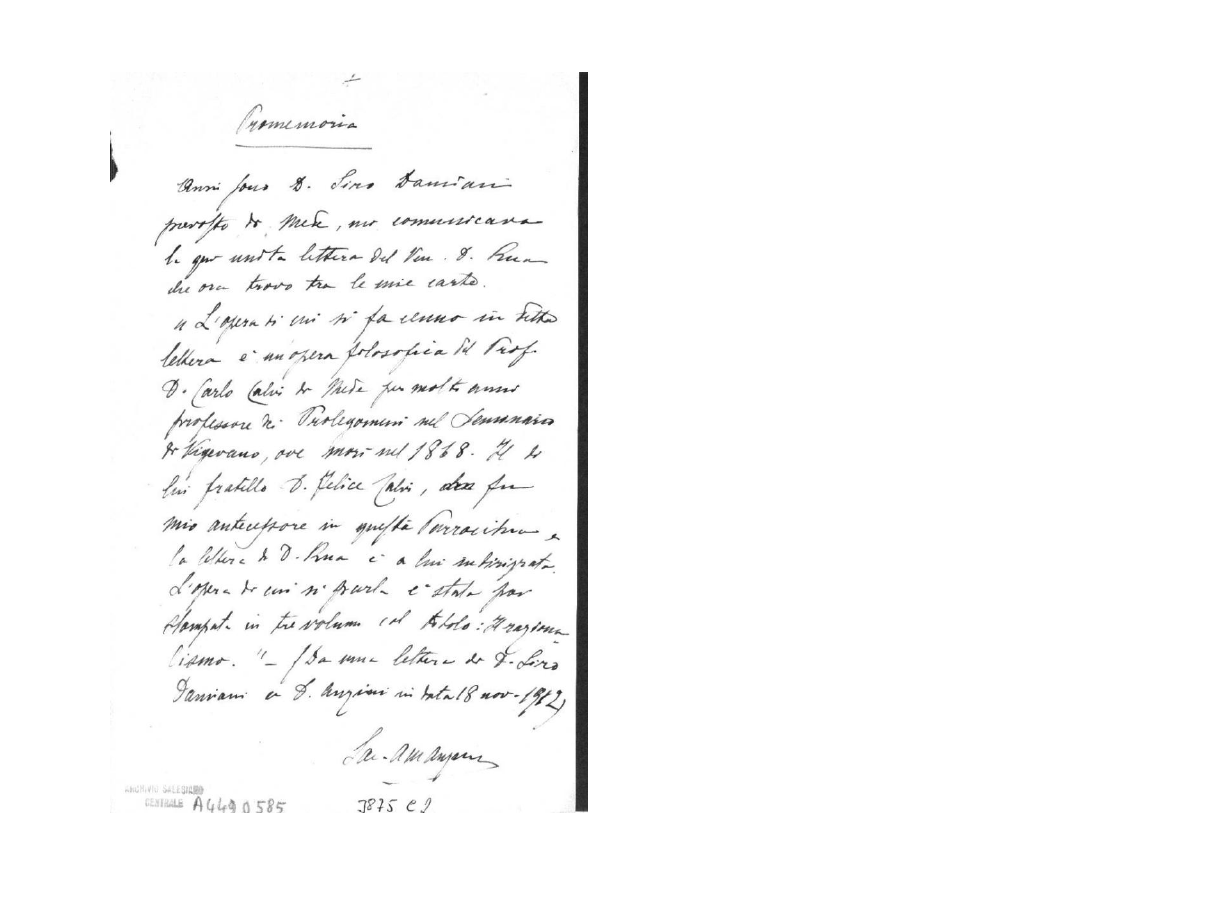 Promemoria
Anni sono D. Siro Damiani
prevosto di Mede, mi comunicava
la qui unita lettera del Ven. D. Rua
che ora trovo tra le mie carte.
« L'opera di cui si fa cenno in detta
lettera è un opera filosofica del Prof.
D. Carlo Calvi di Mede per molti anni
professore di Prolegomeni nel Seminario
di Vigevano, ove morì nel 1868. Il di
lui fratello D. Felice Calvi, fu
mio antecessore in questa Parrocchia e
la lettera di D. Rua è a lui indirizzata.
L'opera di cui si parla è stata poi
stampata in tre volumi col titolo: Il raziona-
lismo. " – (Da una lettera di D. Siro
Damiani a D. Anzini in data 18 nov. 1912)
Sac. A M Anzini
ARCHIVIO SALESIANO
CENTRALE A4490585